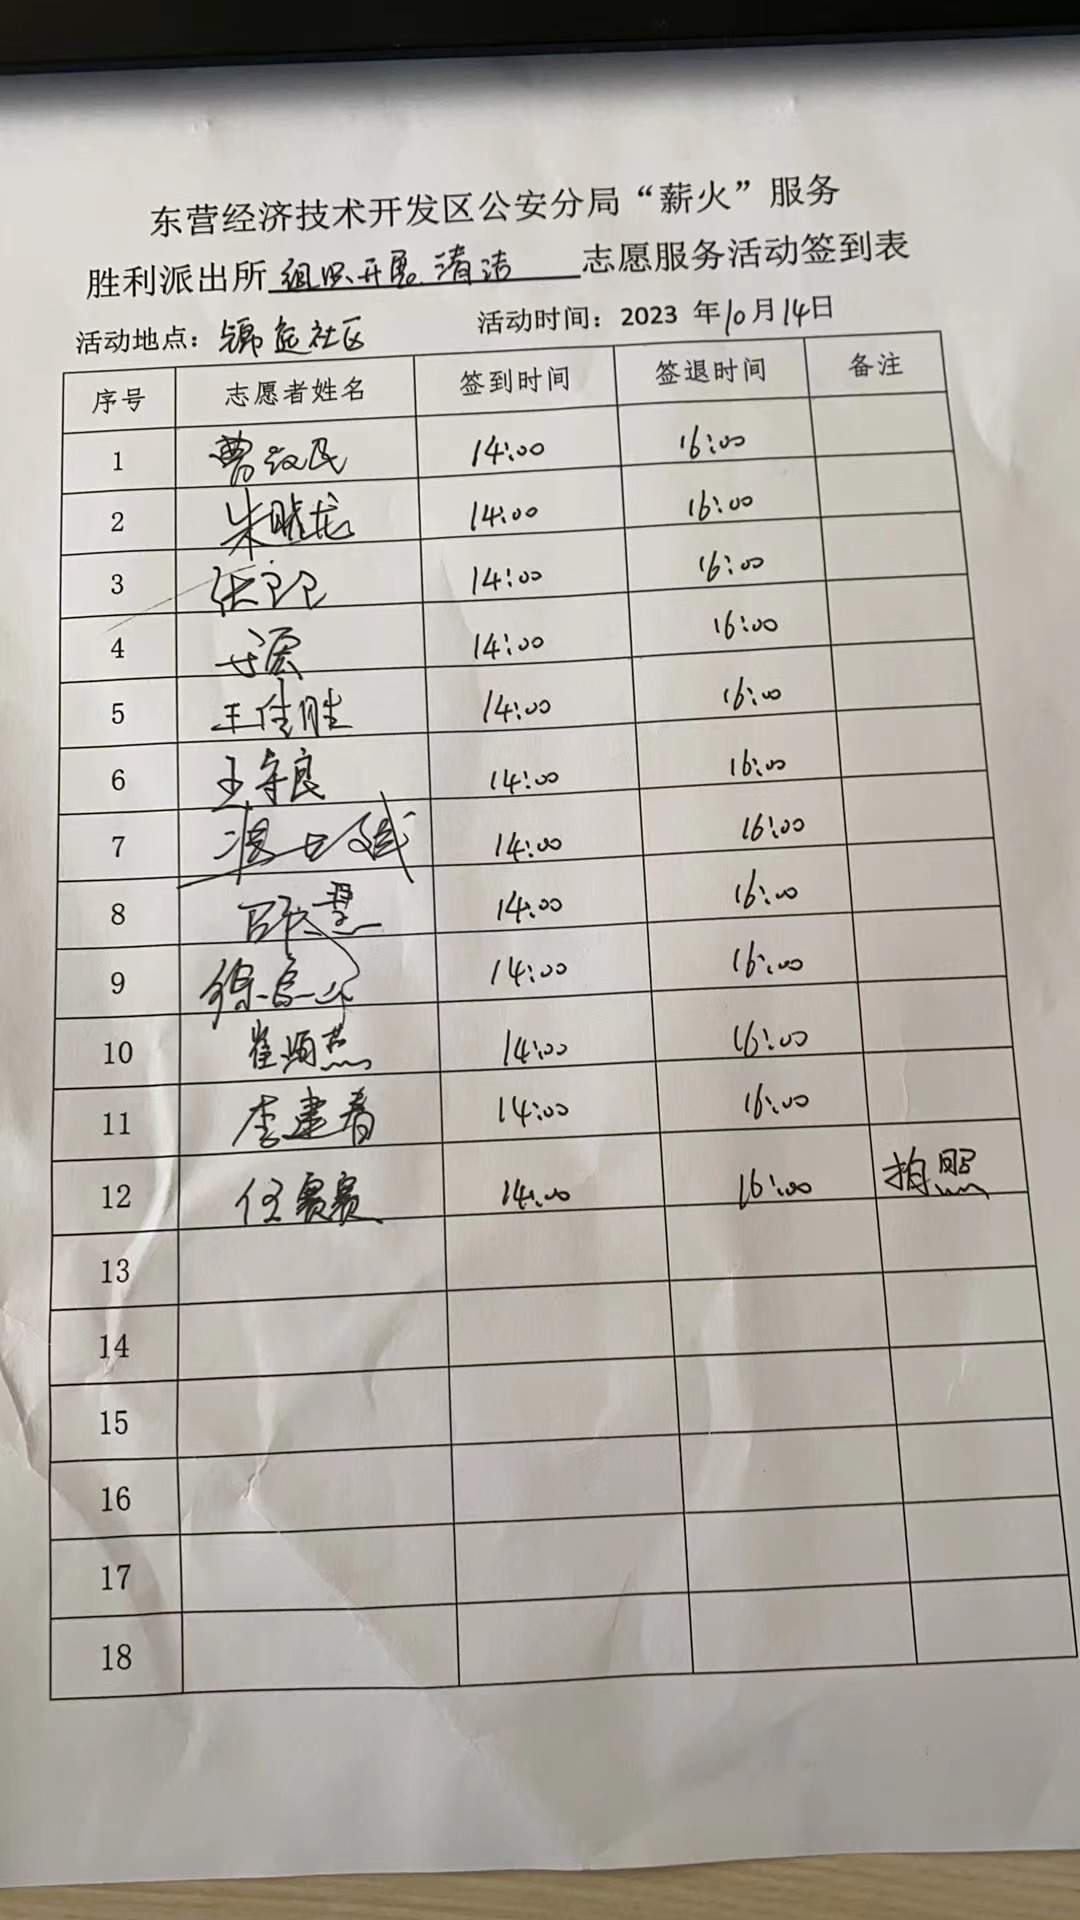 东营经济技术开发区公安分局“薪火”服务
胜利派出所组织开展清洁志愿服务活动签到表
活动地点：锦苑社区 活动时间：2023 年10月14日
序号 志愿者姓名 签到时间 签退时间 备注
1 曹政民 14:00 16:00
2 朱晓龙 14:00 16:00
3 14:00 16:00
4 14:00 16:00
5 王佳胜 14:00 16:00
6 王守良 14:00 16:00
7 14:00 16:00
8 14:00 16:00
9 14:00 16:00
10 崔顺燕 14:00 16:00
11 李建春 14:00 16:00
12 任赛赛 14:00 16:00 拍照
13
14
15
16
17
18